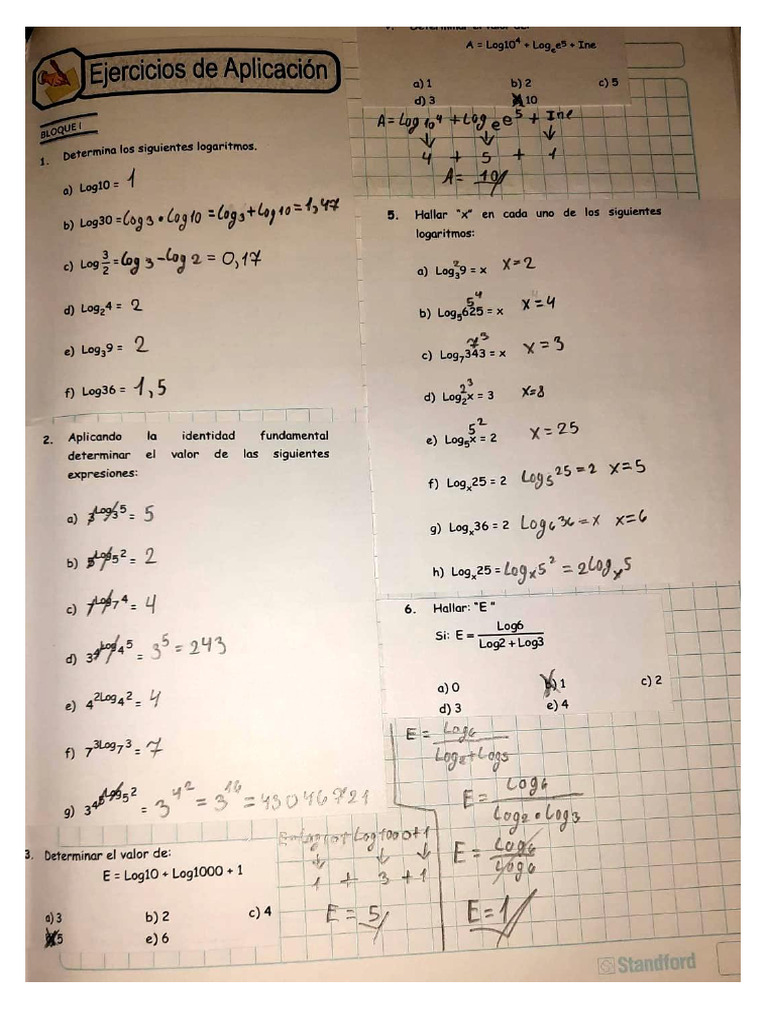 Ejercicios de Aplicación
BLOQUE I
1. Determina los siguientes logaritmos.
a) Log10 = 1
b) Log30 = Log3 • Log10 = Log3 + Log10 = 1,47
c) Log 3/2 = Log 3 - Log 2 = 0,17
d) Log₂4 = 2
e) Log₃9 = 2
f) Log36 = 1,5
2. Aplicando la identidad fundamental
determinar el valor de las siguientes
expresiones:
a) 3^Log₃5 = 5
b) 5^Log₅2 = 2
c) 7^Log₇4 = 4
d) 3^4^Log₄5 = 3⁵ = 243
e) 4^2Log₄2 = 4
f) 7^3Log₇3 = 7
g) 3^4^5^Log₅2 = 3^4^2 = 3^16 = 43046721
3. Determinar el valor de:
E = Log10 + Log1000 + 1
a) 3 b) 2 c) 4
5 e) 6
E=Log10+Log1000+1
1 + 3 + 1
E = 5
A = Log10⁴ + Logₑe⁵ + Ine
a) 1 b) 2 c) 5
d) 3 10
A= Log10⁴ + Log e e⁵ + Ine
4 + 5 + 1
A= 10
5. Hallar "x" en cada uno de los siguientes
logaritmos:
2
a) Log₃9 = x x=2
5⁴
b) Log₅625 = x x=4
7³
c) Log₇343 = x x=3
2³
d) Log₂x = 3 x=8
5²
e) Log₅x = 2 x=25
f) Logₓ25 = 2 Log₅25=2 x=5
g) Logₓ36 = 2 Log₆36=x x=6
h) Logₓ25 = Logₓ5² = 2Logₓ5
6. Hallar: "E "
Si: E = Log6 / Log2 + Log3
a) 0 b) 1 c) 2
d) 3 e) 4
E = Log6 / Log2+Log3
E = Log6 / Log2 • Log3
E = Log6 / Log6
E=1
Standford